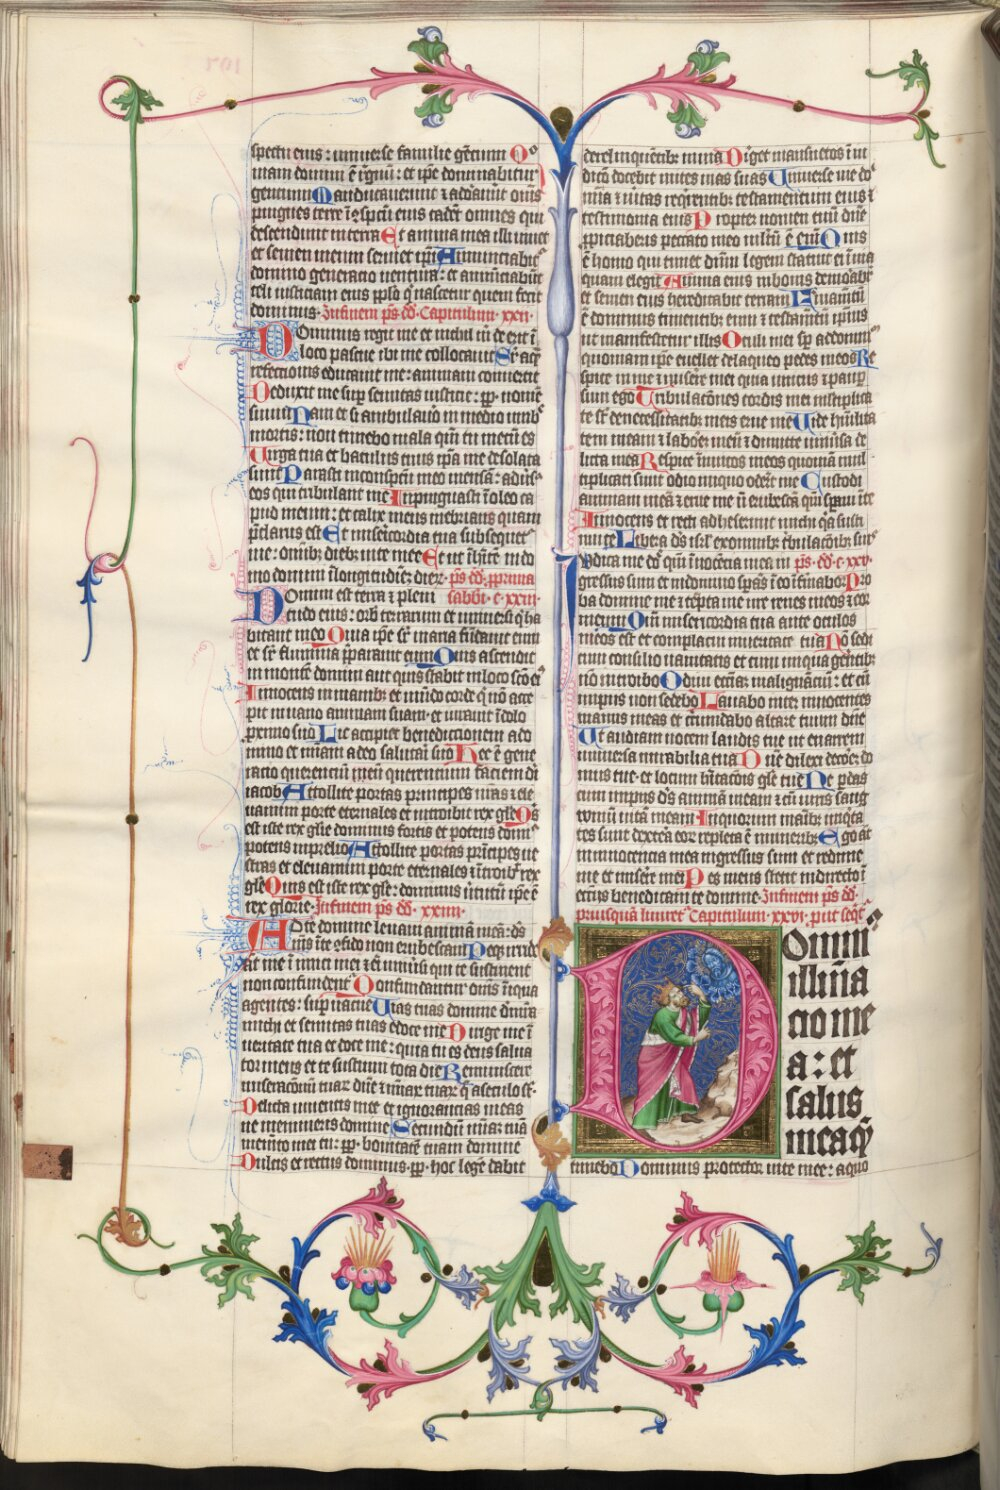 spectu eius : universe familie gēcium Qo
niam domini ē rgnū : et ipē dominabitur
gencium Manducaverunt ⁊ adoraverūt om̄s
pingues terre ī ꝯspctu eius cadēt omnes qui
descendunt in terrā Et anima mea illi vivet
et semen meum serviet ipī Annunciabitur
domino generacio ventura : et annūciabūt
celi iusticiam eius pplo q̄ nascetur quem fecit
dominus · Infinem ps̄ dd̄ · Capitulum · xxii ·
Dominus regit me et nichil m̄ de erit ī
loco pascue ibi me collocavit Sr̄ aq̄
refectionis educavit me : animam convertit
Deduxit me sup semitas iusticie : ꝓp nomē
suum Nam et si ambulavo in medio umbre
mortis : non timebo mala qm̄ tu mecū es
Virga tua et baculus tuus ip̄a me ɔsolata
sunt Parasti in conspctu meo mensā : advs̄
eos qui tribulant me Inpinguasti ī oleo ca
pud meum : et calix meus inebrians quam
p̄clarus est Et misericordia tua subsequet
me : om̄ibꝫ diebꝫ vite mee Et ut īhitē in do
mo domini ī longitudinē dierꝫ · ps̄ dd̄ · prima
Domini est terra ⁊ pleni sabbi · c · xxiii ·
tudo eius : orb terrarum et universi q̄ ha
bitant in eo Quia ip̄e sr̄ maria fūdavit eum
et sr̄ flumina p̄paravit eum Quis ascendit
in montē domini aut quis stabit in loco scō eī
Innocens in manibꝫ et mūdo corde q̄ nō acce
pit in vano animam suam · et iuravit ī dolo
pximo suo Hic accipiet benedictionem a do
mino et miām a deo salutari suo Hec ē gene
racio querenciū ip̄m querentium faciem di
iacob Attollite portas principes vr̄as ⁊ ele
vamini porte eternales et introibit rex gl̄e Qis
est iste rex gl̄ie dominus fortis et potens domi
potens in prelio Attollite portas prīcipes ve
stras et elevamini porte eternales ⁊ ītroibt rex
gl̄e Quis est iste rex gl̄e : dominus v̄tutū ip̄e ē
rex glorie · Infinem ps̄ dd̄ · xxiiii ·
Ad te domine levavi animā meā : ds̄
ms̄ ī te ɔfido non erubescam Neqꝫ irride
āt me ī imici mei ⁊ēi univ̄si qui te sustinent
non confundent Confundantur om̄s īiqua
agentes : sup̄vacue Vias tuas domine dmr̄a
michi et semitas tuas edoce me Dirige me ī
veritate tua et doce me : quia tu es deus salva
tor meus et te sustinui tota die Reminiscere
miseracōnū tuarꝫ dn̄e ⁊ mīarꝫ tuarꝫ q̄ a seculo st̄
Delicta iuventis mee et ignorancias meas
ne memineris domine Secundū miām tuā
memēto mei tu : ꝓp bonitatē tuam domine
Dulcis et rectus dominus · ꝓp hoc legē dabit
derelinquentibꝫ in via Diriget mansuetos ī iu
dicō docebit mites vias suas Universe vie do
mīa ⁊ v̄itas reqrentibꝫ testamentum eius ⁊
testimonia eius Propter nomen tuū dn̄e
ppiciaberis peccato meo multū ē eni Quis
ē homo qui timet dn̄m legem statuit ei ī via
quam elegit Anima eius in bonis demorabit
et semen eius hereditabit terram Firmamtū
ē dominus timentibꝫ eum ⁊ testamtū ipsius
ut manifestetur illis Oculi mei sp̄ ad domīnū
quoniam ip̄e evellet de laqueo pedes meos Re
spice in me ⁊ miserē mei quia unicus ⁊ paup
sum ego Tribulacōnes cordis mei m̄ltiplica
te st̄ de necessitatibꝫ meis erue me Vide hūilita
tem meam ⁊ laborē meū ⁊ dimitte univ̄sa de
licta mea Respice īimicos meos quoniā mul
tiplicati sunt odio iniquo oderūt me Custodi
animam meā ⁊ erue me n̄ erubescā qm̄ spavi ī te
Innocens et recti adheserunt michi q̄a susti
nui te Libera ds̄ isrl̄ ex omnibꝫ tribulacōibꝫ suis
Iudica me dn̄e qm̄ ī nocētia mea in ps̄ · dd̄ · c · xxv ·
gressus sum et in domino spās n̄ īfirmabor Pro
ba domine me ⁊ tēpta me ure renes meos ⁊ cor
meum Qm̄ misericordia tua ante oculos
meos est et complacui in veritate tua Nō sedi
cum consilio vanitatis et cum iniqua gerētibꝫ
nō introibo Odivi ecc̄iaꝫ malignāciū : et cū
impiis non sedebo Lavabo inter innocentes
manus meas et c̄cumdabo altare tuum dn̄e
Ut audiam vocem laudis tue ut enarrem
universa mirabilia tua Dn̄e dilexi decorē do
mus tue · et locum hītacōis gl̄e tue Ne pdas
cum impiis ds̄ animā meam ⁊ cū viris sang
winū vitā meam In quorum maībꝫ iniqta
tes sunt dextera eorꝫ repleta ē muneribꝫ Ego aūt
in innocencia mea ingressus sum et redime
me et miserē mei Pes meus stetit in directo ī
eccīis benedicam te domine · Infinem ps̄ dd̄ ·
priusquā liniret Capitulum xxvi · p̄nt seqt̄
Domin
illūīa
cio me
a : et
salus
mea q̄
timebo Dominus protector vite mee : a quo